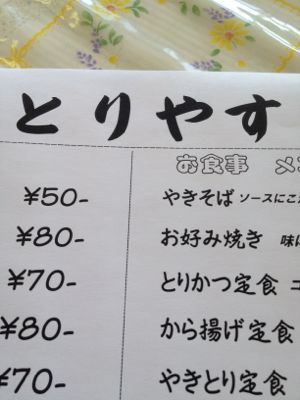 とりやす
お食事 メ
¥50-
やきそば ソースにこ
¥80-
お好み焼き 味
¥70-
とりかつ定食
¥80-
から揚げ定食
¥70-
やきとり定食